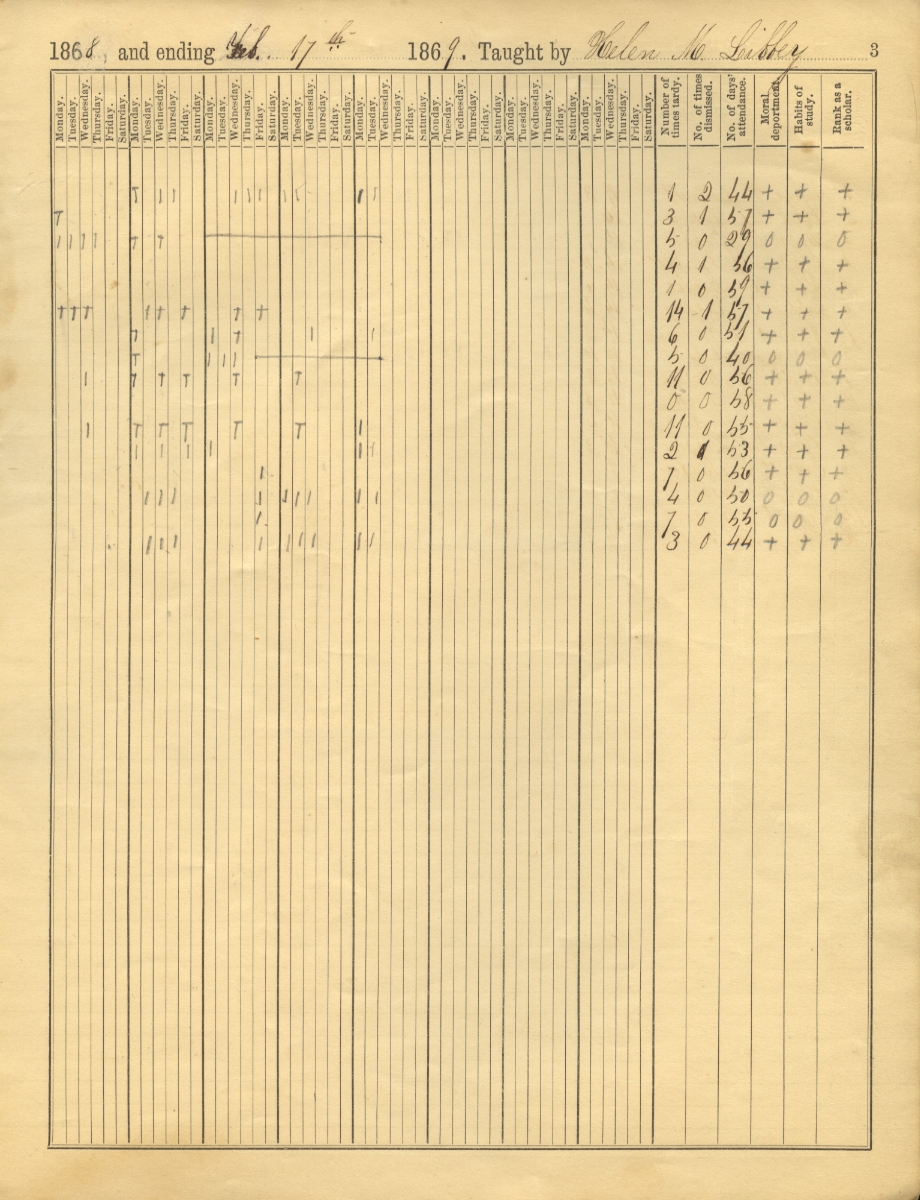 1868, and ending Feb. 17th 1869. Taught by Helen M Libbey 3
Monday. Tuesday. Wednesday. Thursday. Friday. Saturday. Monday. Tuesday. Wednesday. Thursday. Friday. Saturday. Monday. Tuesday. Wednesday. Thursday. Friday. Saturday. Monday. Tuesday. Wednesday. Thursday. Friday. Saturday. Monday. Tuesday. Wednesday. Thursday. Friday. Saturday. Monday. Tuesday. Wednesday. Thursday. Friday. Saturday. Monday. Tuesday. Wednesday. Thursday. Friday. Saturday. Monday. Tuesday. Wednesday. Thursday. Friday. Saturday. Number of times tardy. No. of times dismissed. No. of days' attendance. Moral deportment. Habits of study. Rank as a scholar.
T 1 1 1 1 1 1 1 1 1 1 2 44 + + +
T 3 1 57 + + +
1 1 1 1 T T 5 0 29 0 0 0
4 1 56 + + +
1 0 59 + + +
T T T 1 T T T T 14 1 57 + + +
T 1 T 1 1 6 0 51 + + +
T 1 1 1 5 0 40 0 0 0
1 T T T T T 11 0 56 + + +
0 0 58 + + +
1 T T T T T 1 11 0 55 + + +
1 1 1 1 1 1 1 2 1 53 + + +
1 7 0 56 + + +
1 1 1 1 1 1 1 1 1 4 0 50 0 0 0
1 7 0 55 0 0 0
1 1 1 1 1 1 1 1 1 3 0 44 + + +